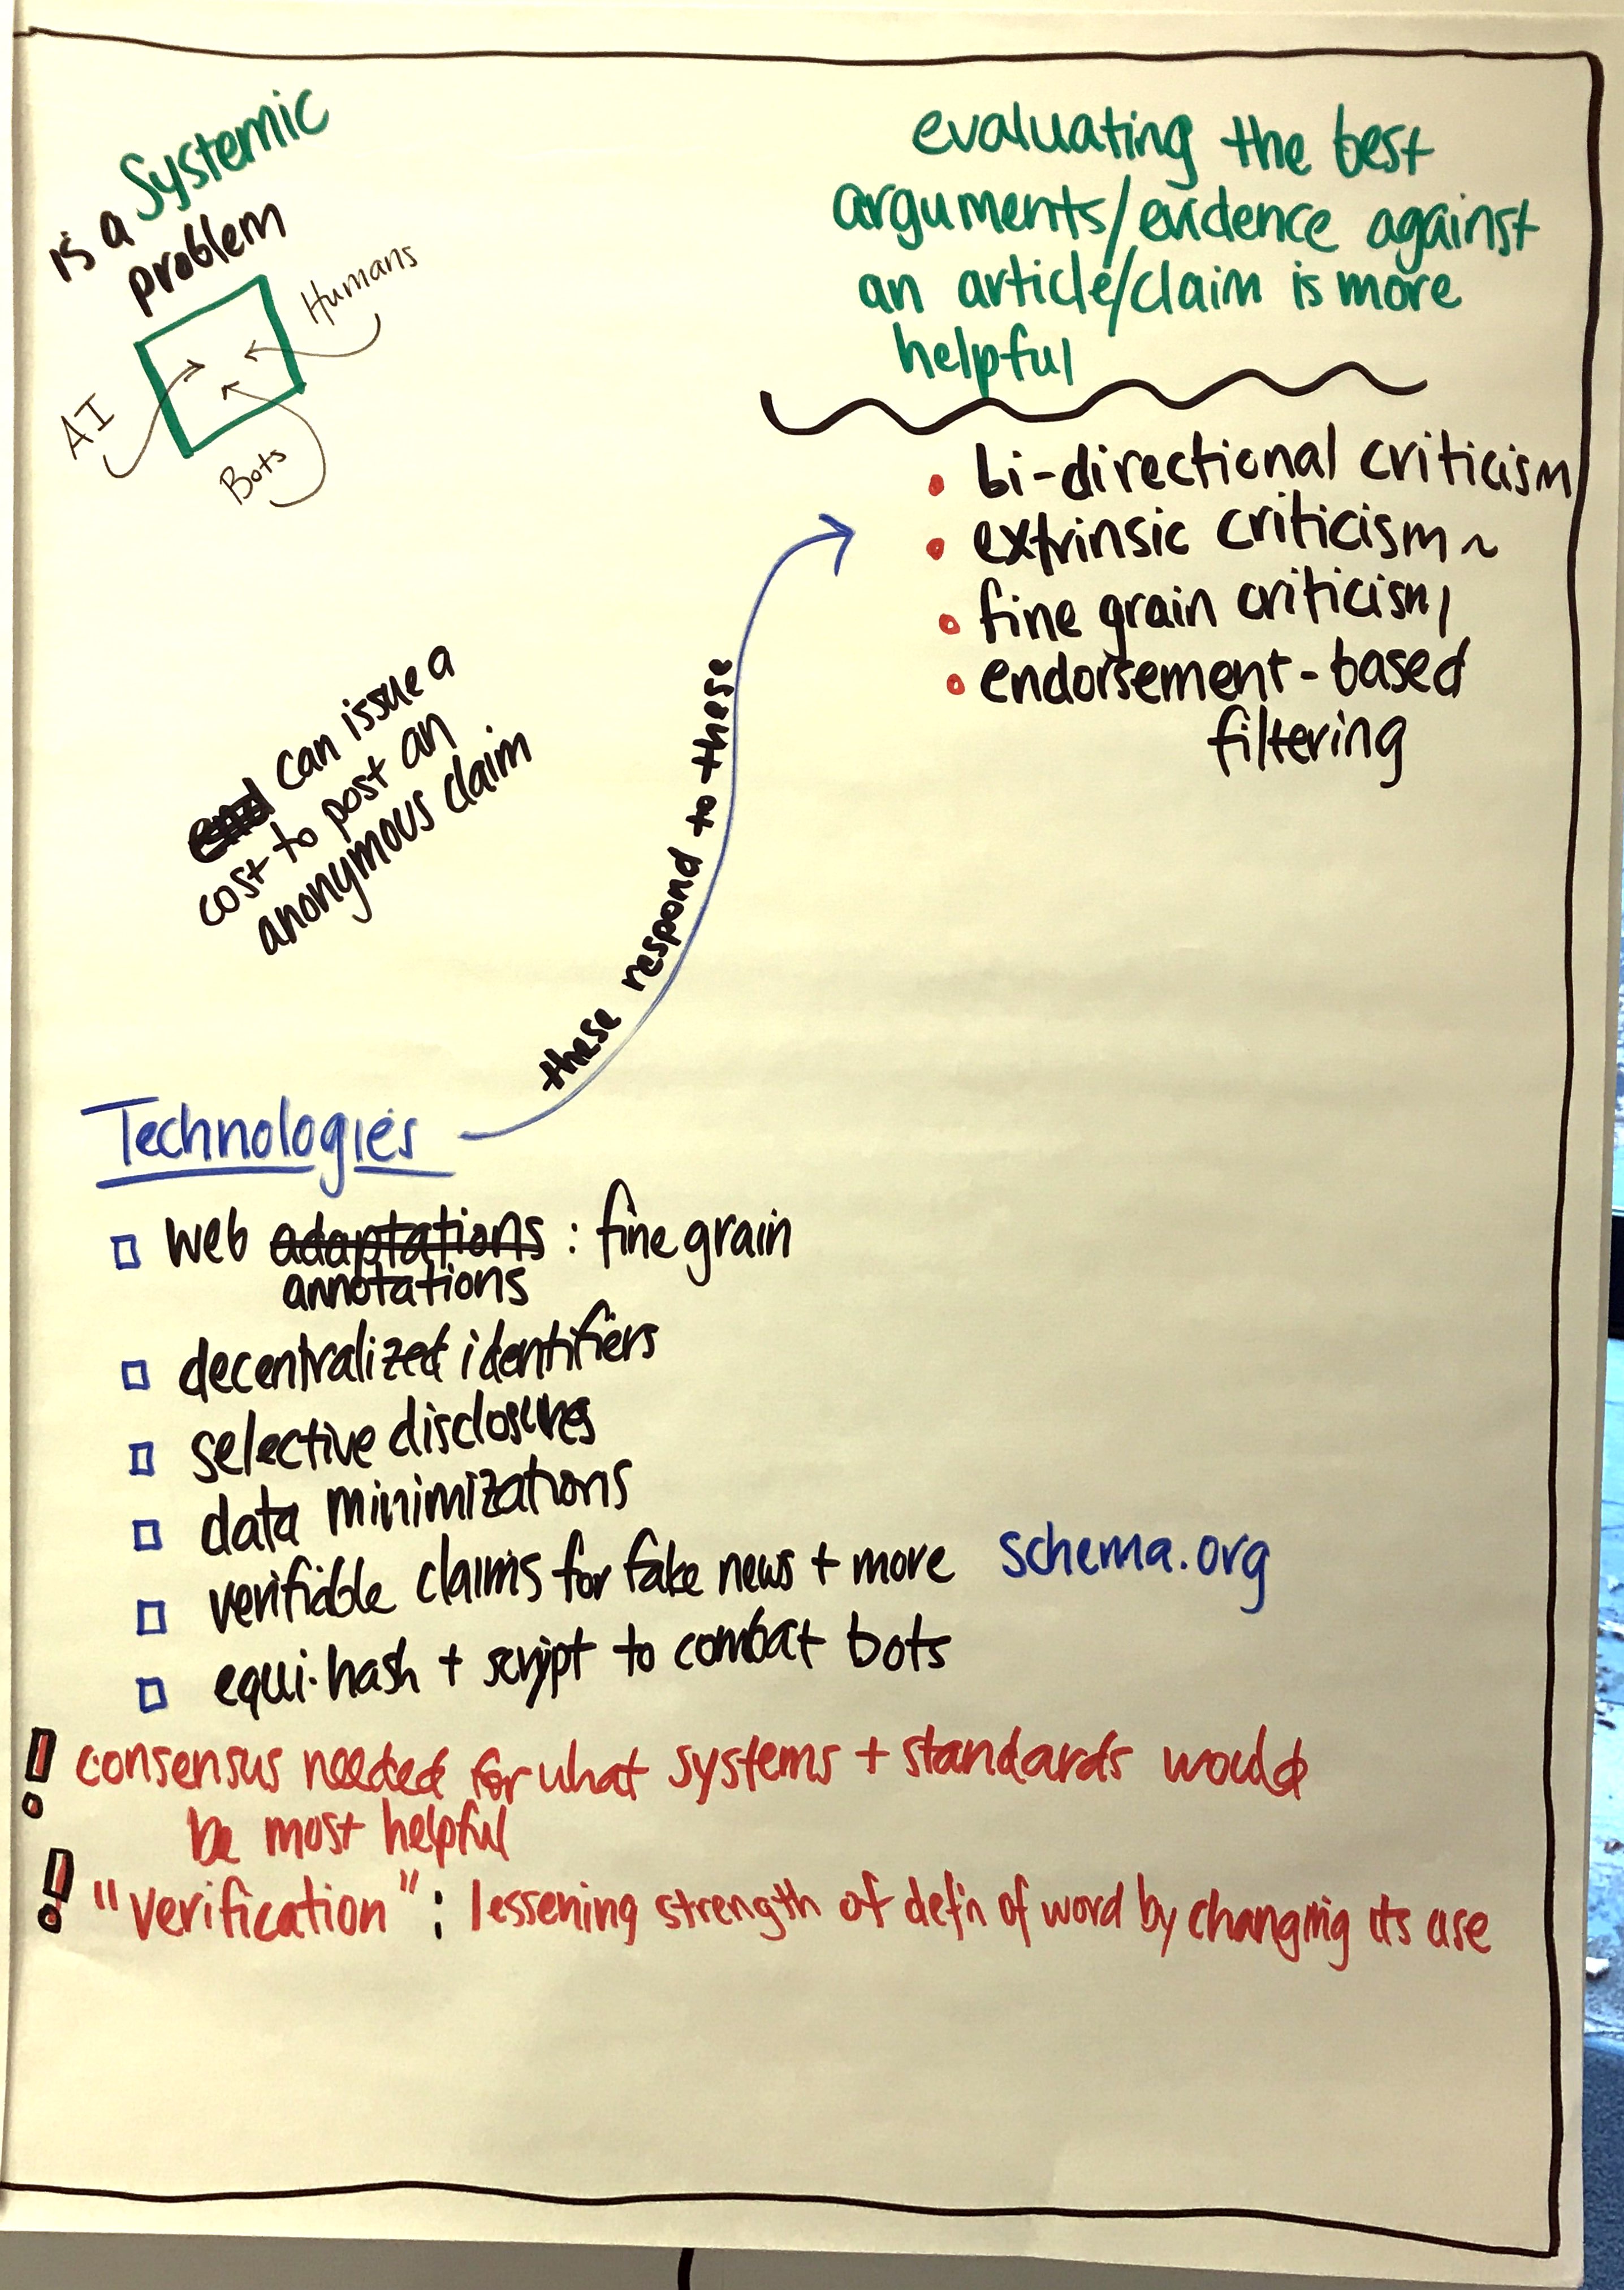 is a Systemic
problem
Humans
AI
Bots
evaluating the best
arguments/evidence against
an article/claim is more
helpful
bi-directional criticism
extrinsic criticism ~
fine grain criticism
endorsement-based
filtering
end can issue a
cost to post an
anonymous claim
these respond to these
Technologies
web adaptations : fine grain
annotations
decentralized identifiers
selective disclosures
data minimizations
verifiable claims for fake news + more schema.org
equi-hash + script to combat bots
! consensus needed for what systems + standards would
be most helpful
! "verification" : lessening strength of def'n of word by changing its use